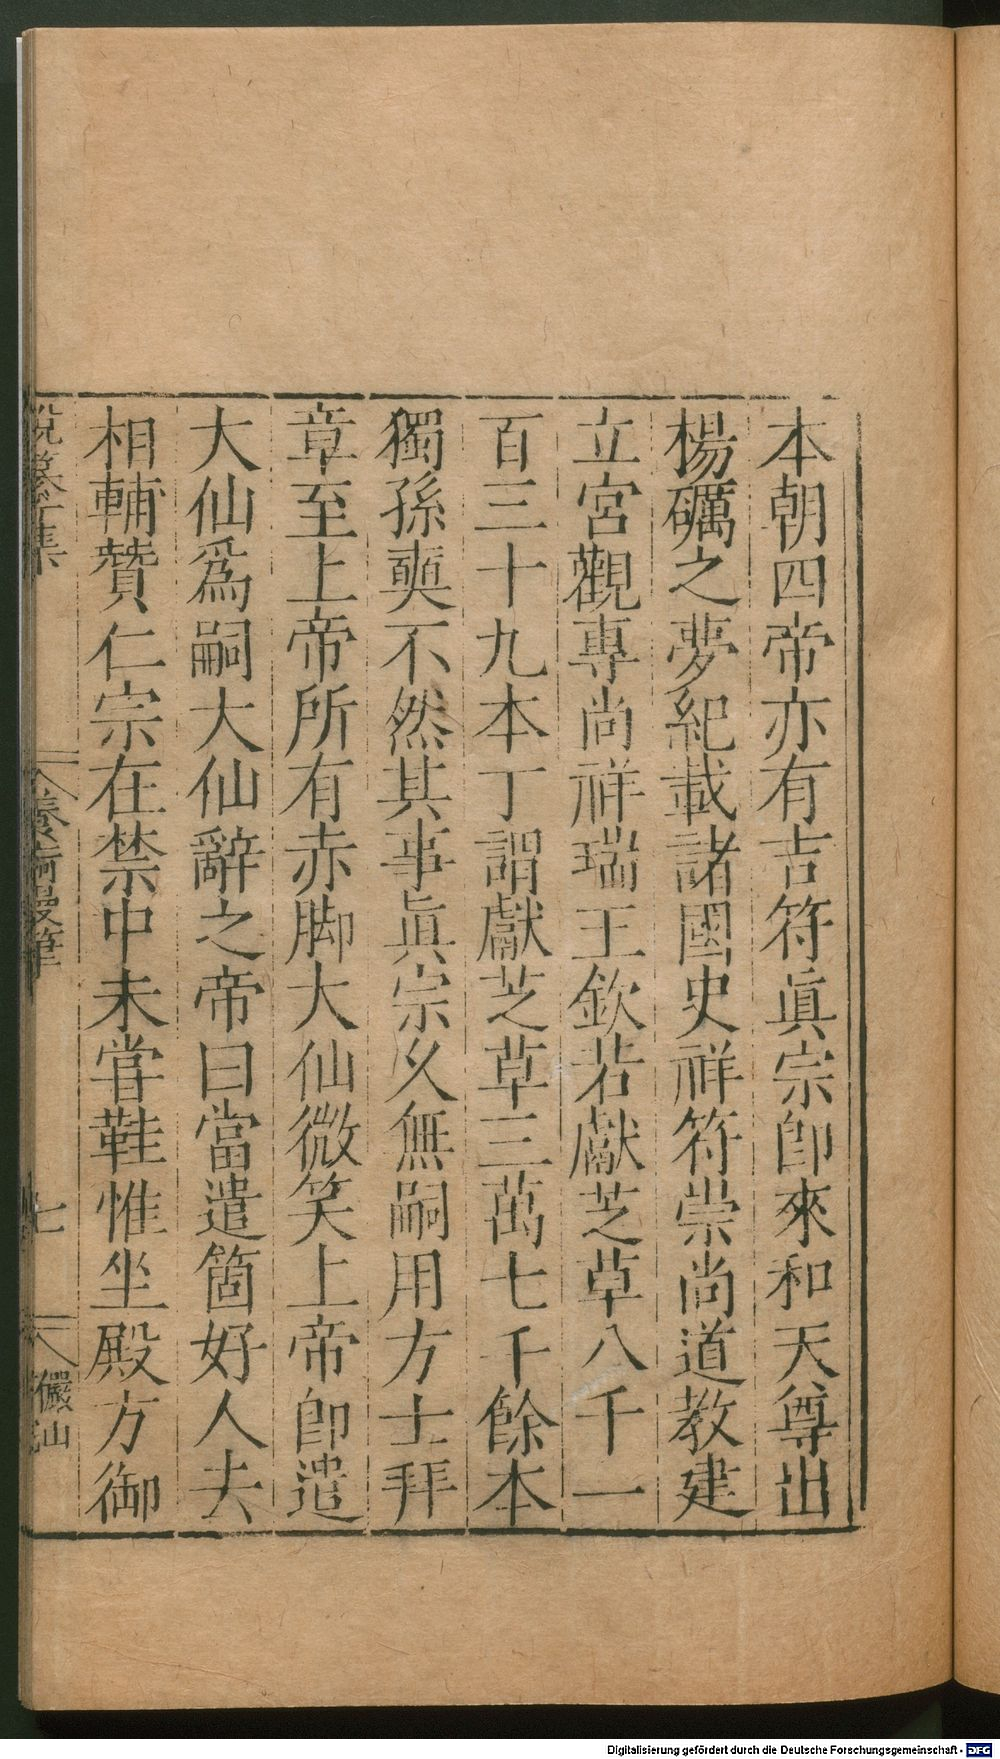 本朝四帝亦有吉符眞宗卽來和天尊出
楊礪之夢紀載諸國史祥符崇尚道教建
立宮觀專尚祥瑞王欽若獻芝草八千一
百三十九本丁謂獻芝草三萬七千餘本
獨孫奭不然其事眞宗乆無嗣用方士拜
章至上帝所有赤脚大仙微笑上帝卽遣
大仙爲嗣大仙辭之帝曰當遣箇好人去
相輔贊仁宗在禁中未甞鞋惟坐殿方御
說纂 集
養痾漫筆
七
儼山
Digitalisierung gefördert durch die Deutsche Forschungsgemeinschaft - DFG